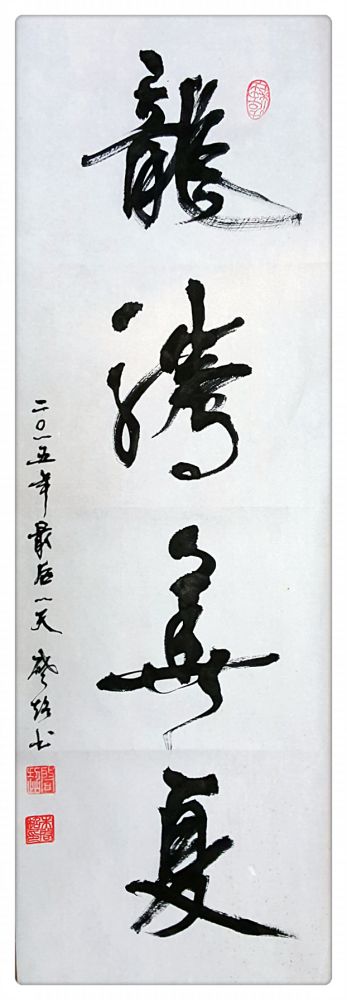 龍騰華夏
二〇一五年最后一天
书